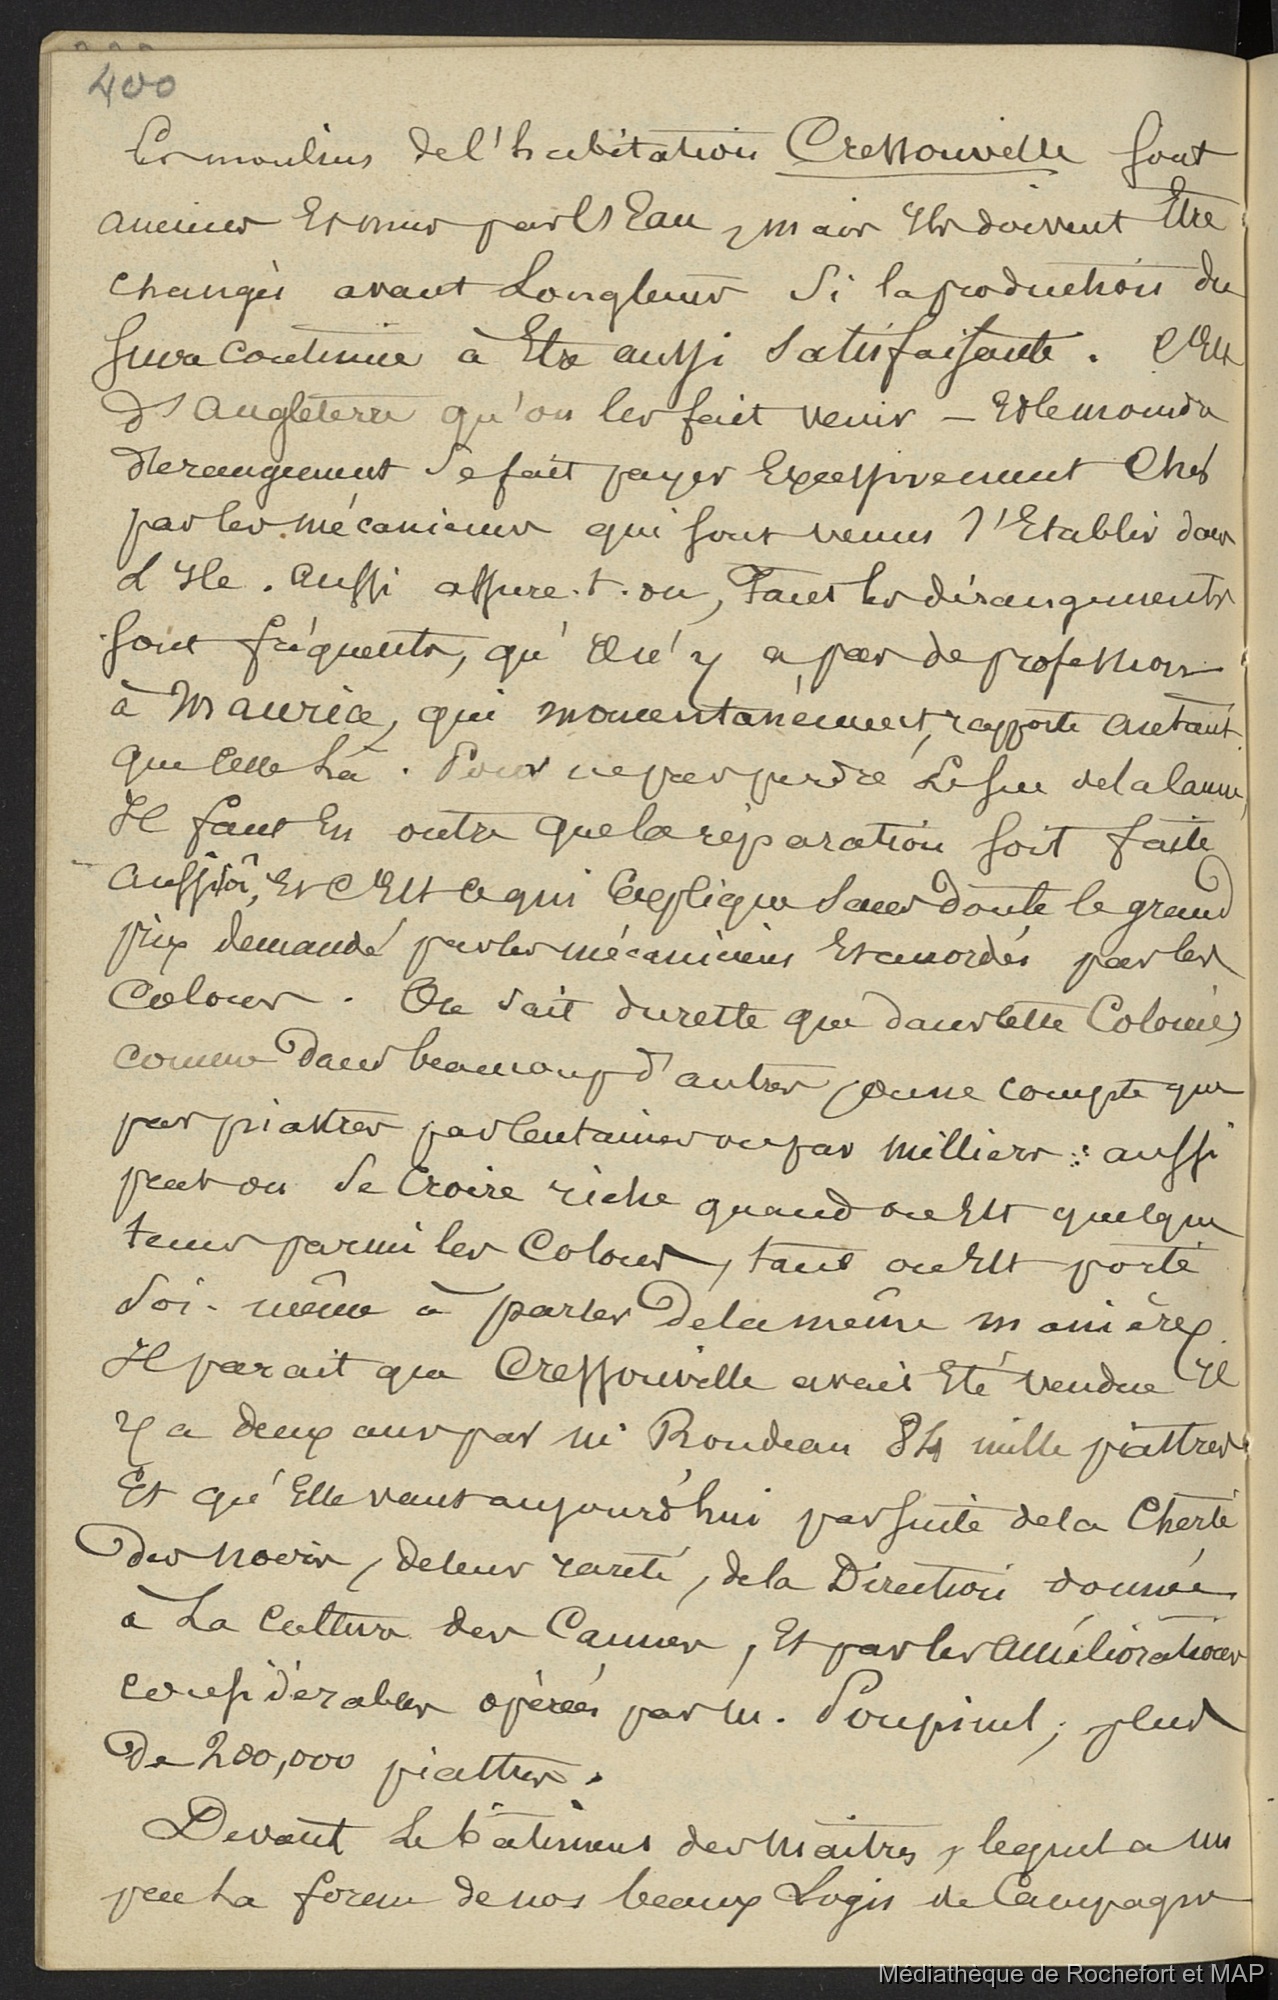 400
Les moulins de l'habitation Cressonville sont
anciens Et mus par l'Eau, mais Ils doivent Etre
changés avant Longtems Si la production du
sucre continue à Etre aussi Satisfaisante. C'Est
d'Angleterre qu'on les fait venir – Et le moindre
dérangement Se fait payer Excessivement Cher
par les mécaniciens qui sont venus s'Etablir dans
L'Ile. Aussi assure-t-on, Tant les dérangements
sont fréquents, qu'Il n'y a pas de profession
à Maurice, qui momentanément, rapporte autant
que celle Là. Pour ne pas perdre Le suc de la canne,
Il faut En outre que la réparation soit faite
aussitôt, Et c'Est ce qui Explique Sans doute le grand
prix demandé par les mécaniciens Et accordés par les
Colons. On Sait du reste que dans cette Colonie,
comme Dans beaucoup d'autres, on ne compte que
par piastres par Centaines ou par milliers : aussi
peut on Se Croire riche quand on Est quelque
tems parmi les Colons, tant on Est porté
Soi-même à parler De la même manière.
Il parait que Cressonville avait Eté vendue Il
y a deux ans par M. Rondeau 84 mille piastres
Et qu'Elle vaut aujourd'hui par suite de la Cherté
Des noirs, de leur rareté, de la Direction donnée
à La Culture des Cannes, Et par les Améliorations
considérables opérées par M. Poupinel, plus
De 200,000 piastres.
Devant Le bâtiment des Maîtres, lequel a un
peu La forme de nos beaux Logis de Campagne
Médiathèque de Rochefort et MAP